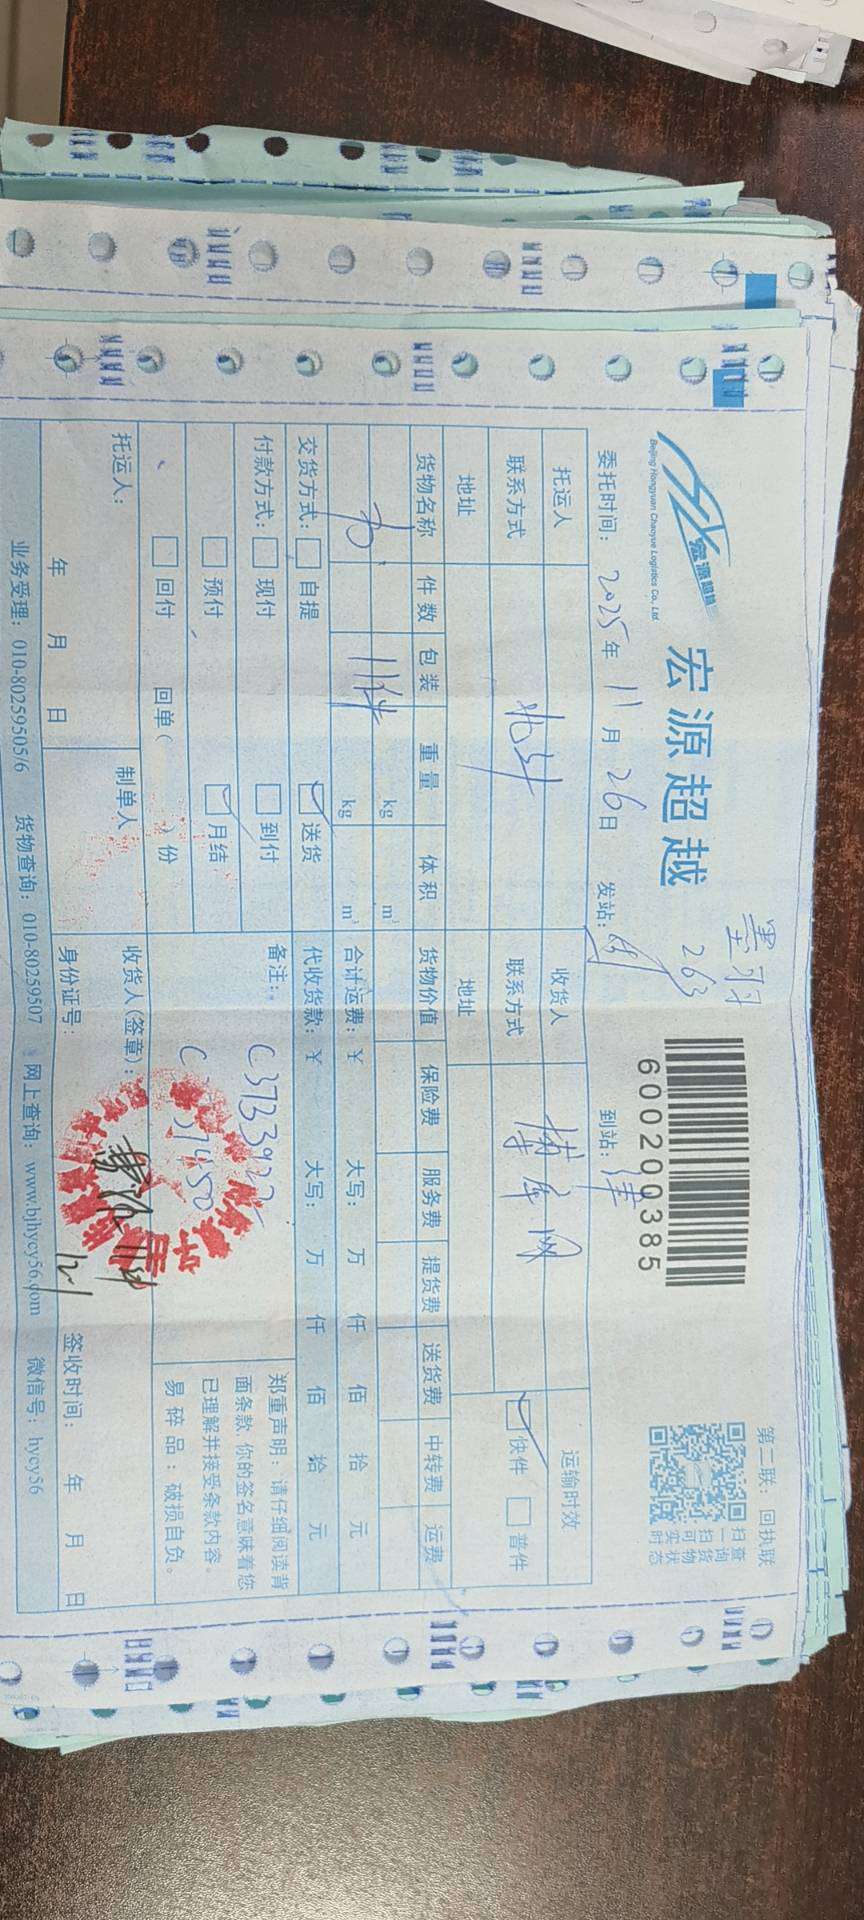 宏源超越
Beijing Hongyuan Chaoyue Logistics Co., Ltd.
宏源超越
墨羽
263
600200385
第二联：回执联
扫一扫可实时
查询货物状态
委托时间：2025年11月26日 发站： 到站：津
托运人 收货人 运输时效
联系方式 北斗 联系方式 快件 普件
地址 地址
货物名称 件数 包装 重量 体积 货物价值 保险费 服务费 提货费 送货费 中转费 运费
kg m³
书 11件 kg m³ 合计运费：￥ 大写： 万 仟 佰 拾 元
交货方式： 自提 送货 代收货款：￥ 大写： 万 仟 佰 拾 元
付款方式： 现付 到付 备注： C3733922
预付 月结
回付 回单( )份
郑重声明：请仔细阅读背
面条款，你的签名意味着您
已理解并接受条款内容。
易碎品：破损自负。
托运人： 制单人 收货人(签章)： 11件
年 月 日 身份证号： 12.1 签收时间： 年 月 日
业务受理：010-80259505/6 货物查询：010-80259507 网上查询：www.bjhycy56.com 微信号：hycy56